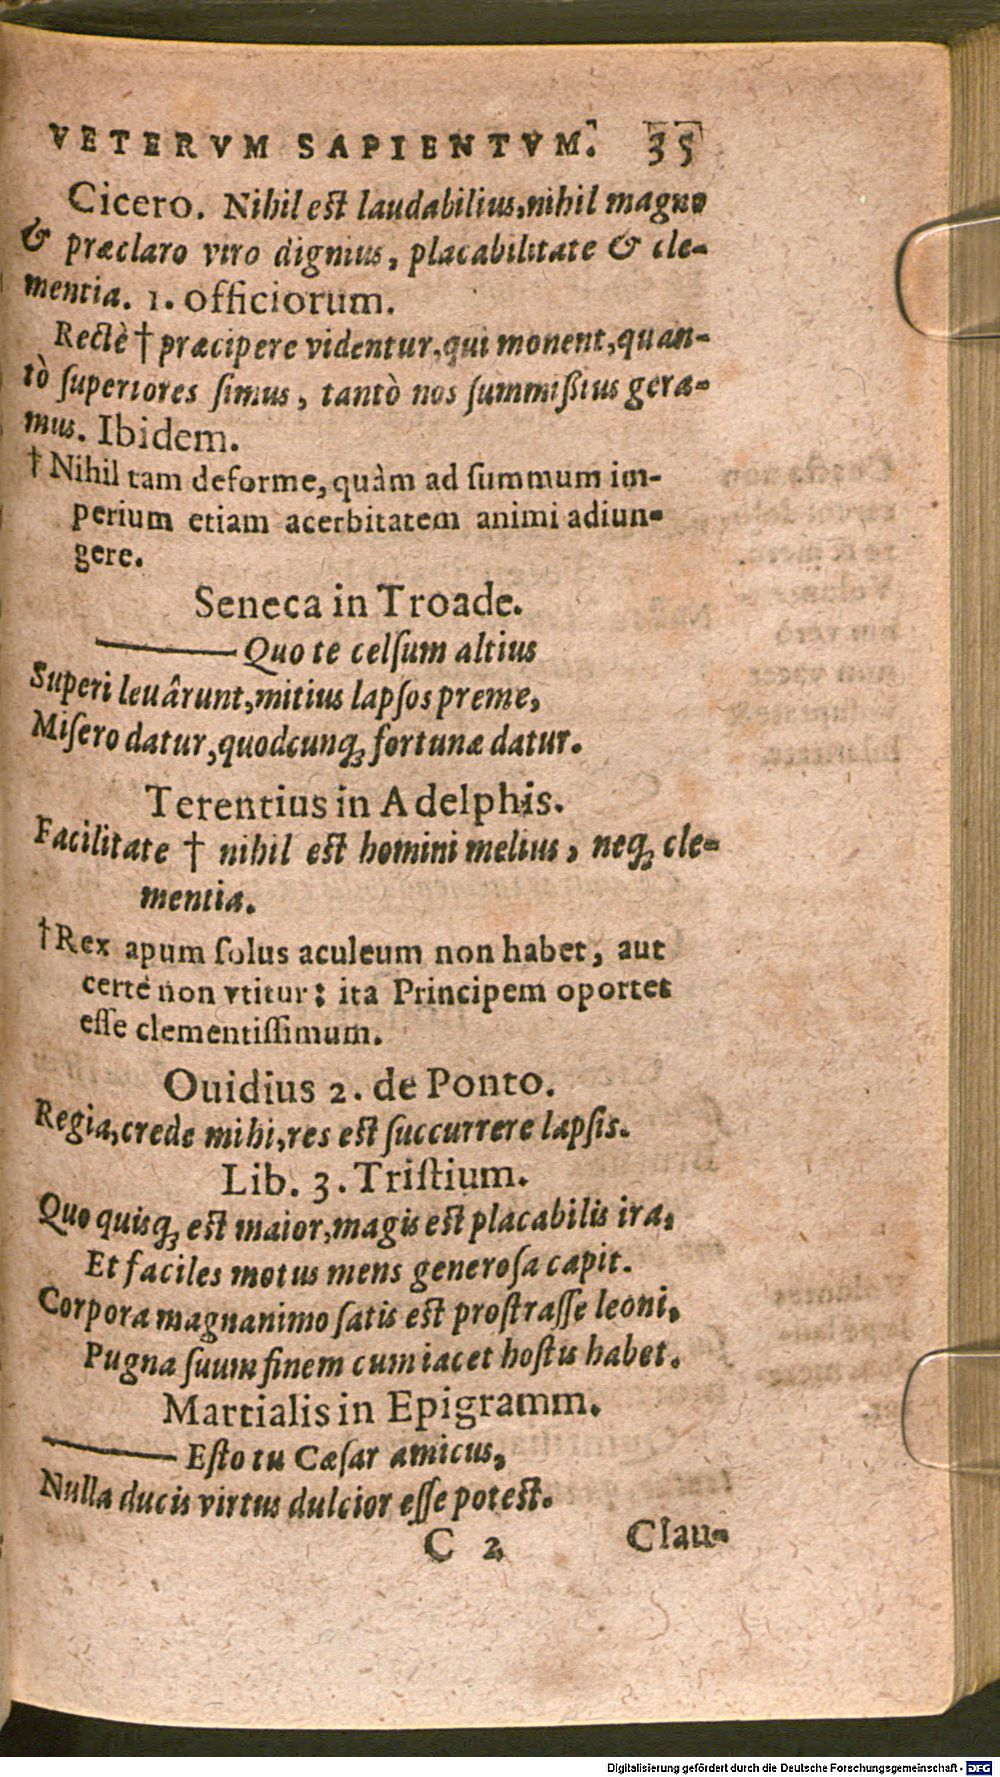 VETERVM SAPIENTVM. 35
Cicero. Nihil est laudabilius, nihil magno
& præclaro viro dignius, placabilitate & cle-
mentia. 1. officiorum.
Rectè † præcipere videntur, qui monent, quan-
tò ſuperiores ſimus, tantò nos ſummißius gera-
mus. Ibidem.
† Nihil tam deforme, quàm ad ſummum im-
perium etiam acerbitatem animi adiun-
gere.
Seneca in Troade.
——— Quo te celſum altius
Superi leuârunt, mitius lapſos preme,
Miſero datur, quodcunq; fortunæ datur.
Terentius in Adelphis.
Facilitate † nihil est homini melius, neq; cle-
mentia.
† Rex apum ſolus aculeum non habet, aut
certè non vtitur: ita Principem oportet
eſſe clementiſſimum.
Ouidius 2. de Ponto.
Regia, crede mihi, res est ſuccurrere lapſis.
Lib. 3. Triſtium.
Quo quisq; est maior, magis est placabilis ira,
Et faciles motus mens generoſa capit.
Corpora magnanimo ſatis est proſtraſſe leoni,
Pugna ſuum finem cum iacet hoſtis habet.
Martialis in Epigramm.
——— Eſto tu Cæſar amicus,
Nulla ducis virtus dulcior eſſe potest.
C 2 Clau-
Digitalisierung gefördert durch die Deutsche Forschungsgemeinschaft - DFG